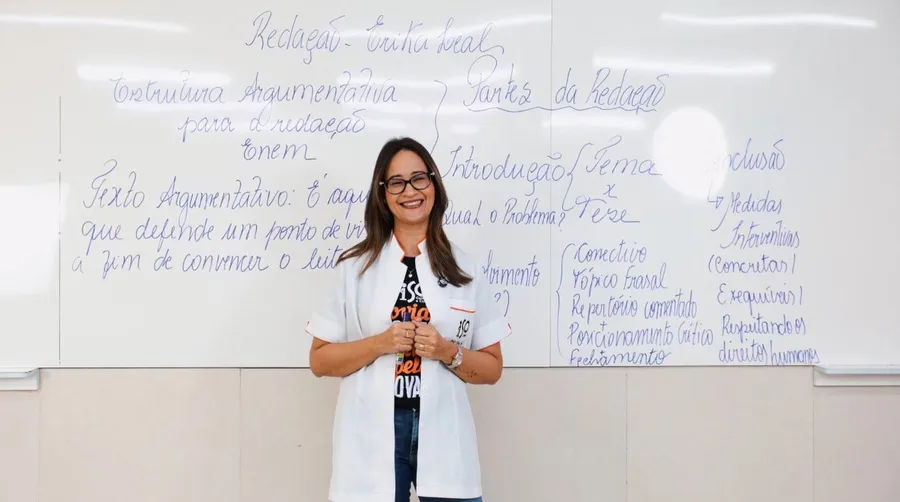 Redação - Erika Leal
Estrutura Argumentativa
para a redação
Enem
Texto Argumentativo: É aqu
que defende um ponto de vi
a fim de convencer o leit
Partes da Redação
Introdução
Qual o Problema?
Tema
x
Tese
olvimento
?)
Conectivo
Tópico Frasal
Repertório comentado
Porcionamento Crítico
Fechamento
onclusão
Medidas
Interventivas
(Concretas/
Exequíveis/
Respeitando os
direitos humanos
iso
OVA
iso